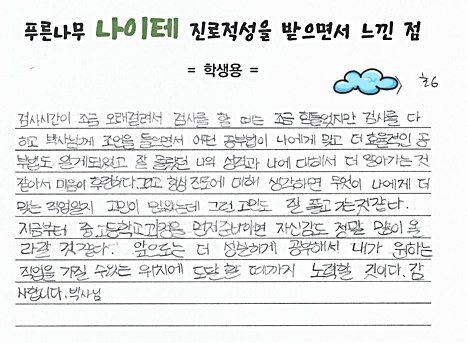 푸른나무 나이테 진로적성을 받으면서 느낀 점
= 학생용 =
초6
검사시간이 조금 오래걸려서 검사를 할 때는 조금 힘들었지만 검사를 다
하고 박사님께 조언을 들으면서 어떤 공부법이 나에게 맞고 더 효율적인 공
부법도 알게되었고 잘 몰랐던 나의 성격과 나에 대해서 더 알아가는 것
같아서 마음이 후련하다. 그리고 항상 진로에 대해 생각하면 무엇이 나에게 더
맞는 직업일지 고민이 있었는데 그런 고민도 잘 풀고 가는것같다.
지금부터 중고등학교과정을 먼저준비하면 자신감도 정말 많이 올
라갈 것 같다. 앞으로는 더 성실하게 공부해서 내가 원하는
직업을 가질 수있는 위치에 도달할 때까지 노력할 것이다. 감
사합니다. 박사님